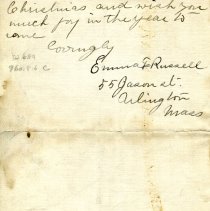 Christmas and wish you
much joy in the year to
come
Lovingly
Emma F Russell
55 Jason st.
Arlington
Mass